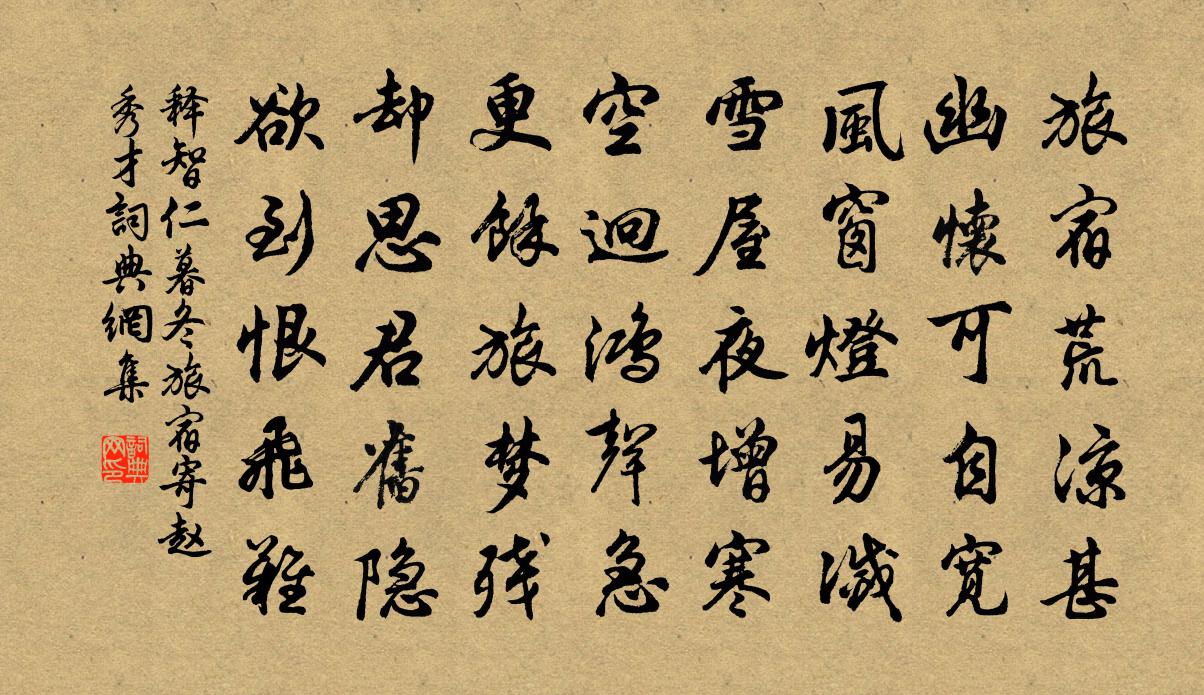 旅宿荒凉甚
幽懷可自寬
風窗燈易滅
雪屋夜增寒
空迥鴻聲急
更餘旅梦残
却思君舊隐
欲到恨飛難
释智仁暮冬旅宿寄赵
秀才詞典網集
詞典网印